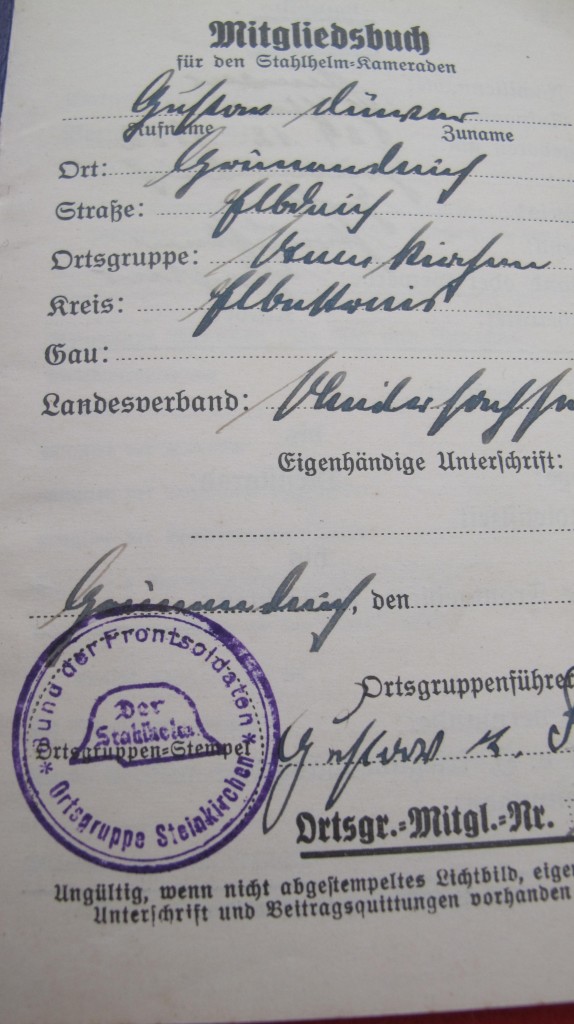 Mitgliedsbuch
für den Stahlhelm-Kameraden
Gustav
Rufname Zuname
Ort: Grünendeich
Straße: Elbdeich
Ortsgruppe: Steinkirchen
Kreis:
Gau:
Landesverband: Niedersachsen
Eigenhändige Unterschrift:
Grünendeich, den
Ortsgruppenführer
Gustav
Bund der Frontsoldaten
Der
Stahlhelm
Ortsgruppen-Stempel
* Ortsgruppe Steinkirchen *
Ortsgr.-Mitgl.-Nr.
Ungültig, wenn nicht abgestempeltes Lichtbild, eigen
Unterschrift und Beitragsquittungen vorhanden